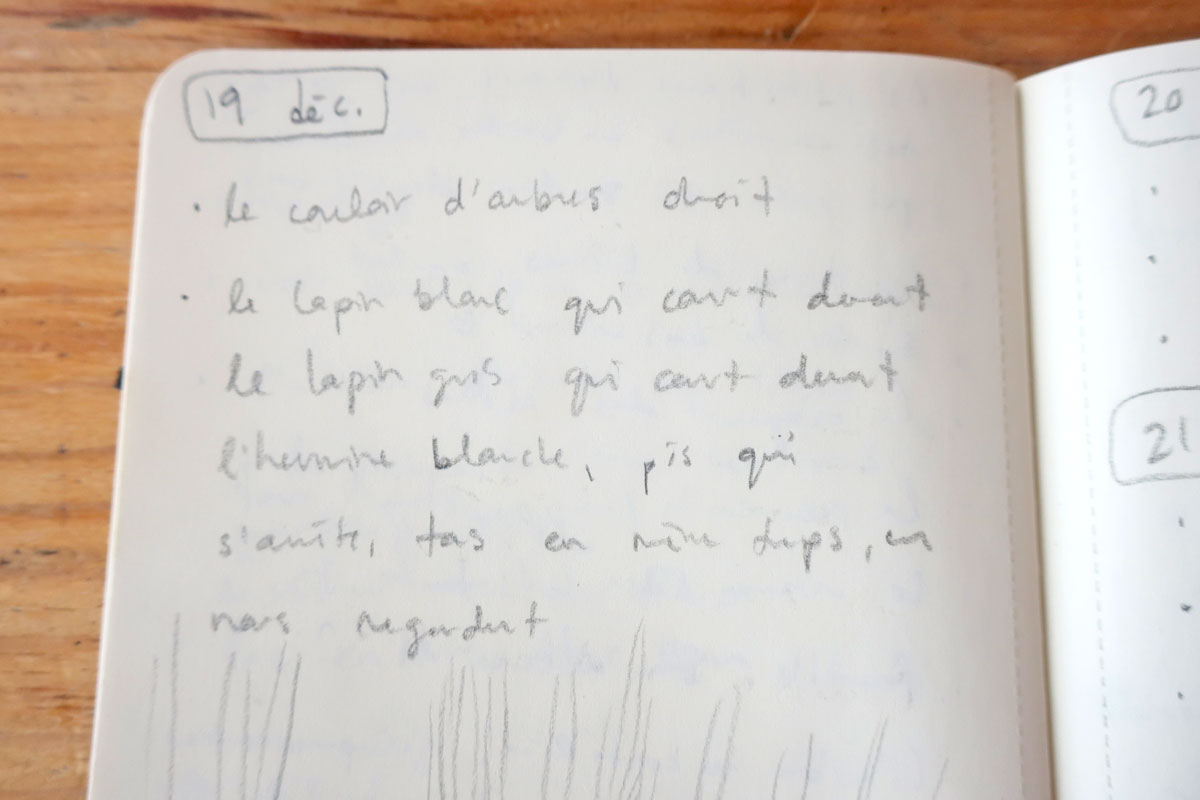 19 déc.
· le couloir d'arbres droit
· le lapin blanc qui court devant
le lapin gris qui court devant
l'hermine blanche, pis qui
s'arrête, tous en même temps, en
nous regardant
20
21